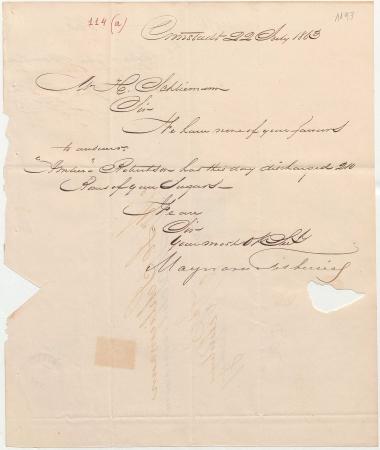 114 (a)
1193
Cronstadt 22 July 1863
Mr H. Schliemann
Sir
We have none of your favours
to answer.
Robertson has this day discharged 210
of your Sugars
We are
Sir
Your most Ob St
Maynard